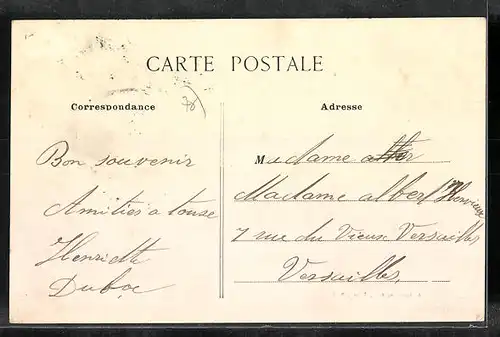 CARTE POSTALE
Correspondance
Bon souvenir
Amitiés a touse
Henriette
Duboc
Adresse
Madame
Madame albert Hervieux
7 rue du Vieux Versailles
Versailles